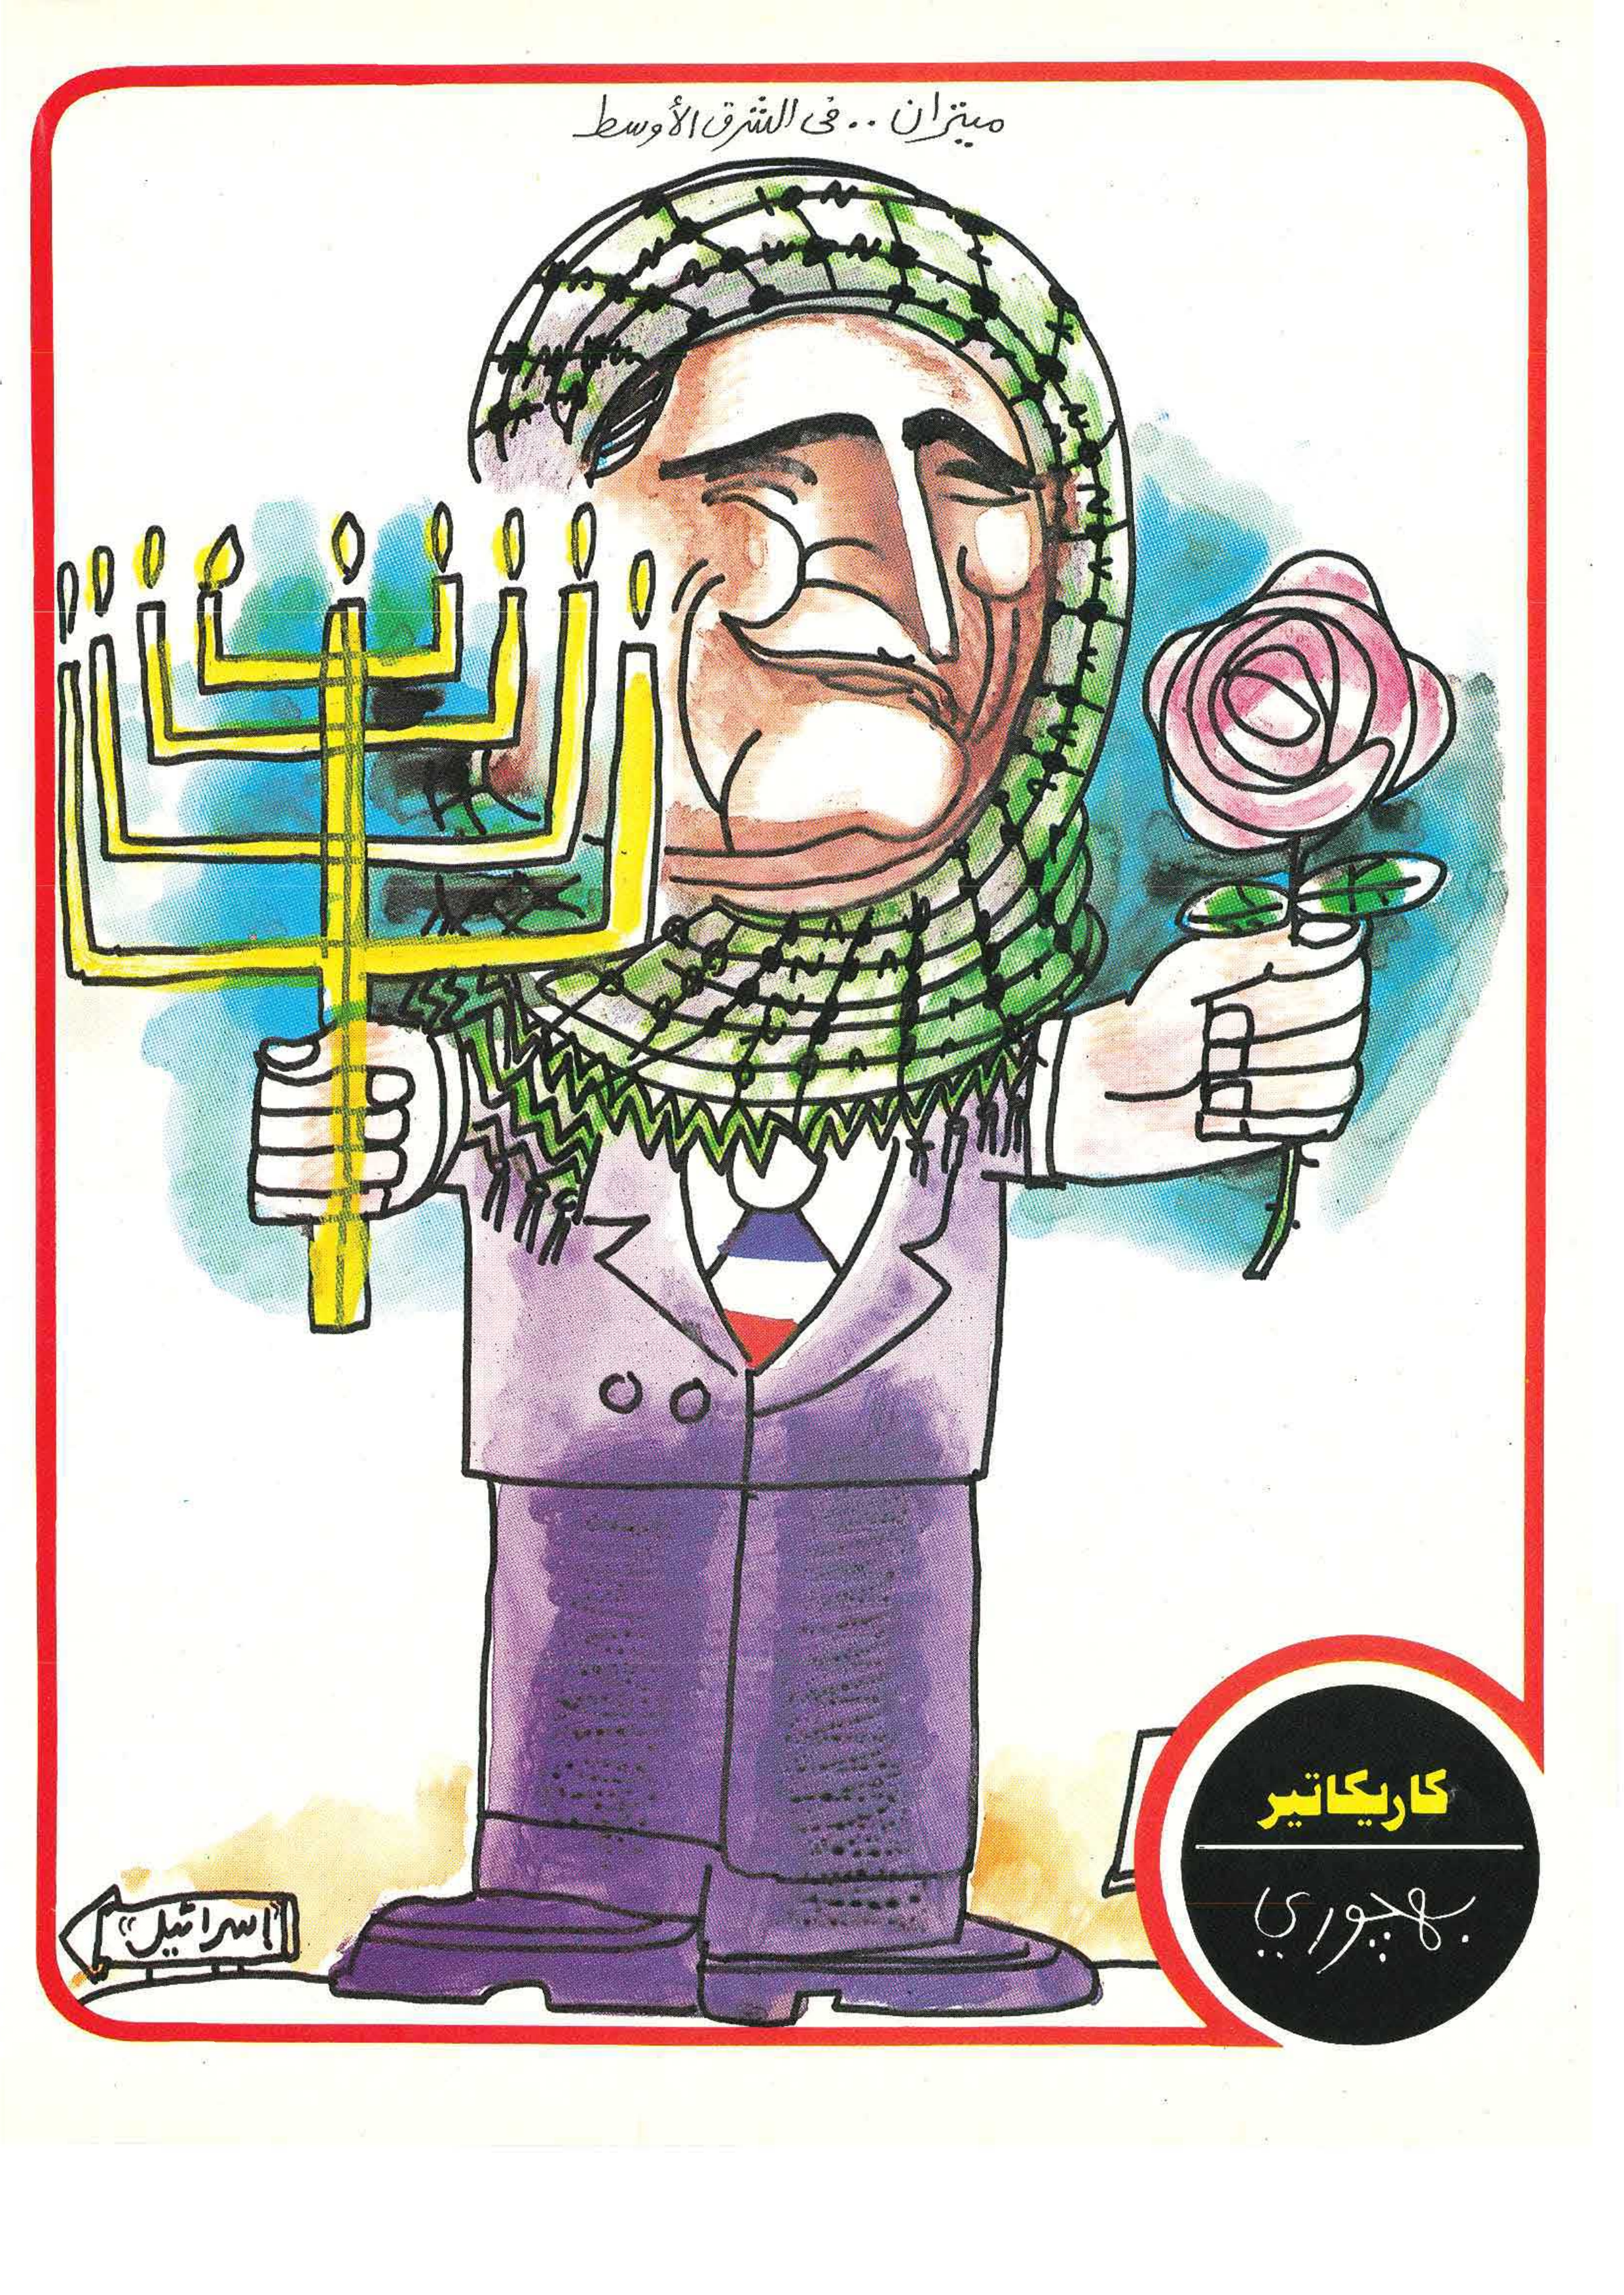 ميتران .. فى الشرق الأوسط
"إسرائيل"
كاريكاتير
بهجوري